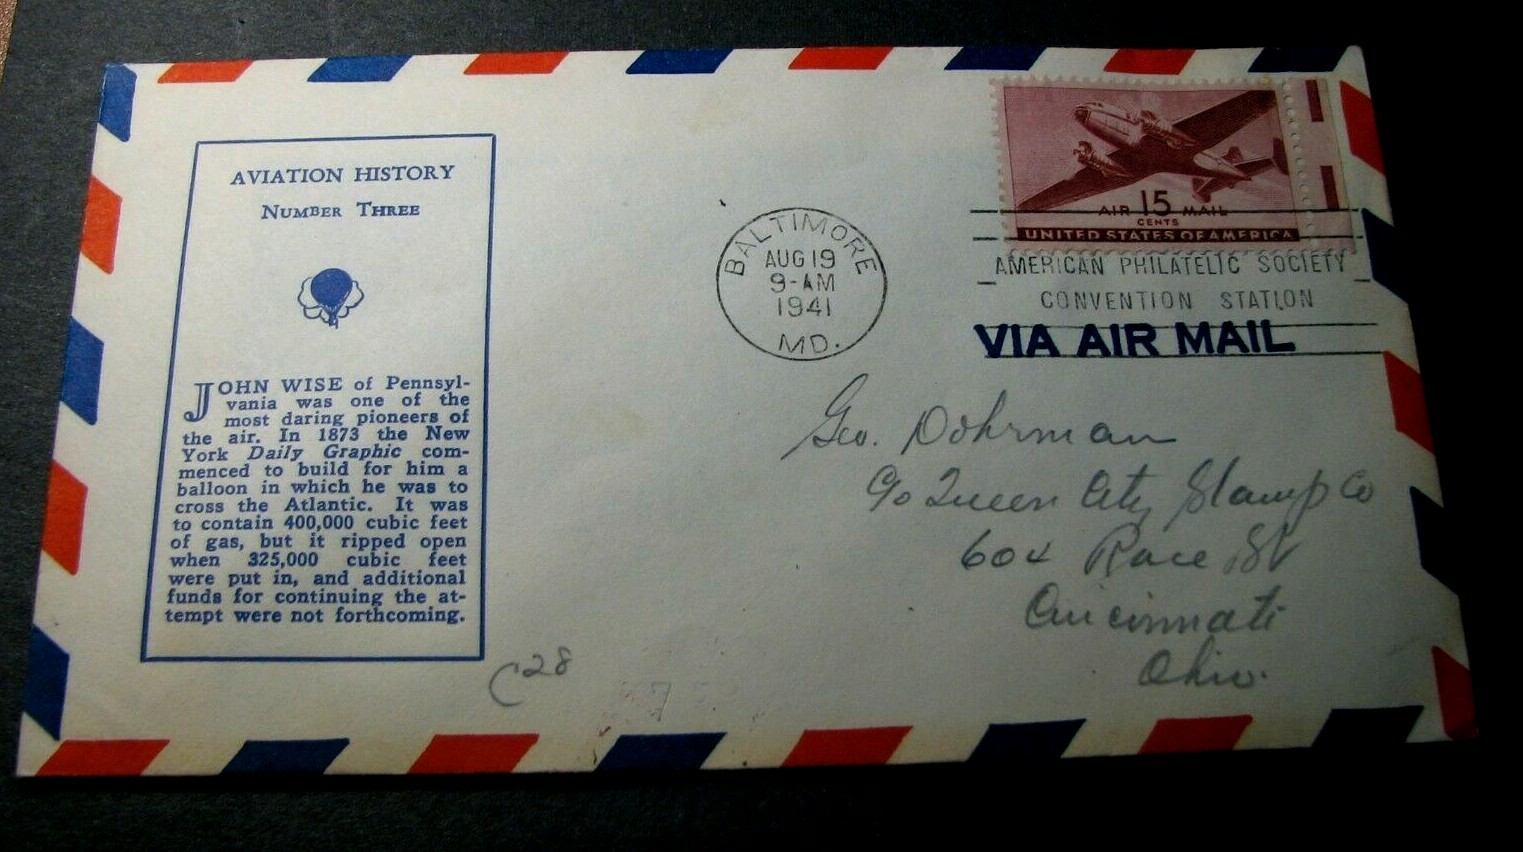 AVIATION HISTORY
NUMBER THREE
JOHN WISE of Pennsyl-
vania was one of the
most daring pioneers of
the air. In 1873 the New
York Daily Graphic com-
menced to build for him a
balloon in which he was to
cross the Atlantic. It was
to contain 400,000 cubic feet
of gas, but it ripped open
when 325,000 cubic feet
were put in, and additional
funds for continuing the at-
tempt were not forthcoming.
C28
BALTIMORE
AUG 19
9-AM
1941
MD.
15
AIR MAIL
CENTS
UNITED STATES OF AMERICA
AMERICAN PHILATELIC SOCIETY
CONVENTION STATION
VIA AIR MAIL
Geo. Dohrman
c/o Queen City Stamp Co
604 Race St
Cincinnati
Ohio.